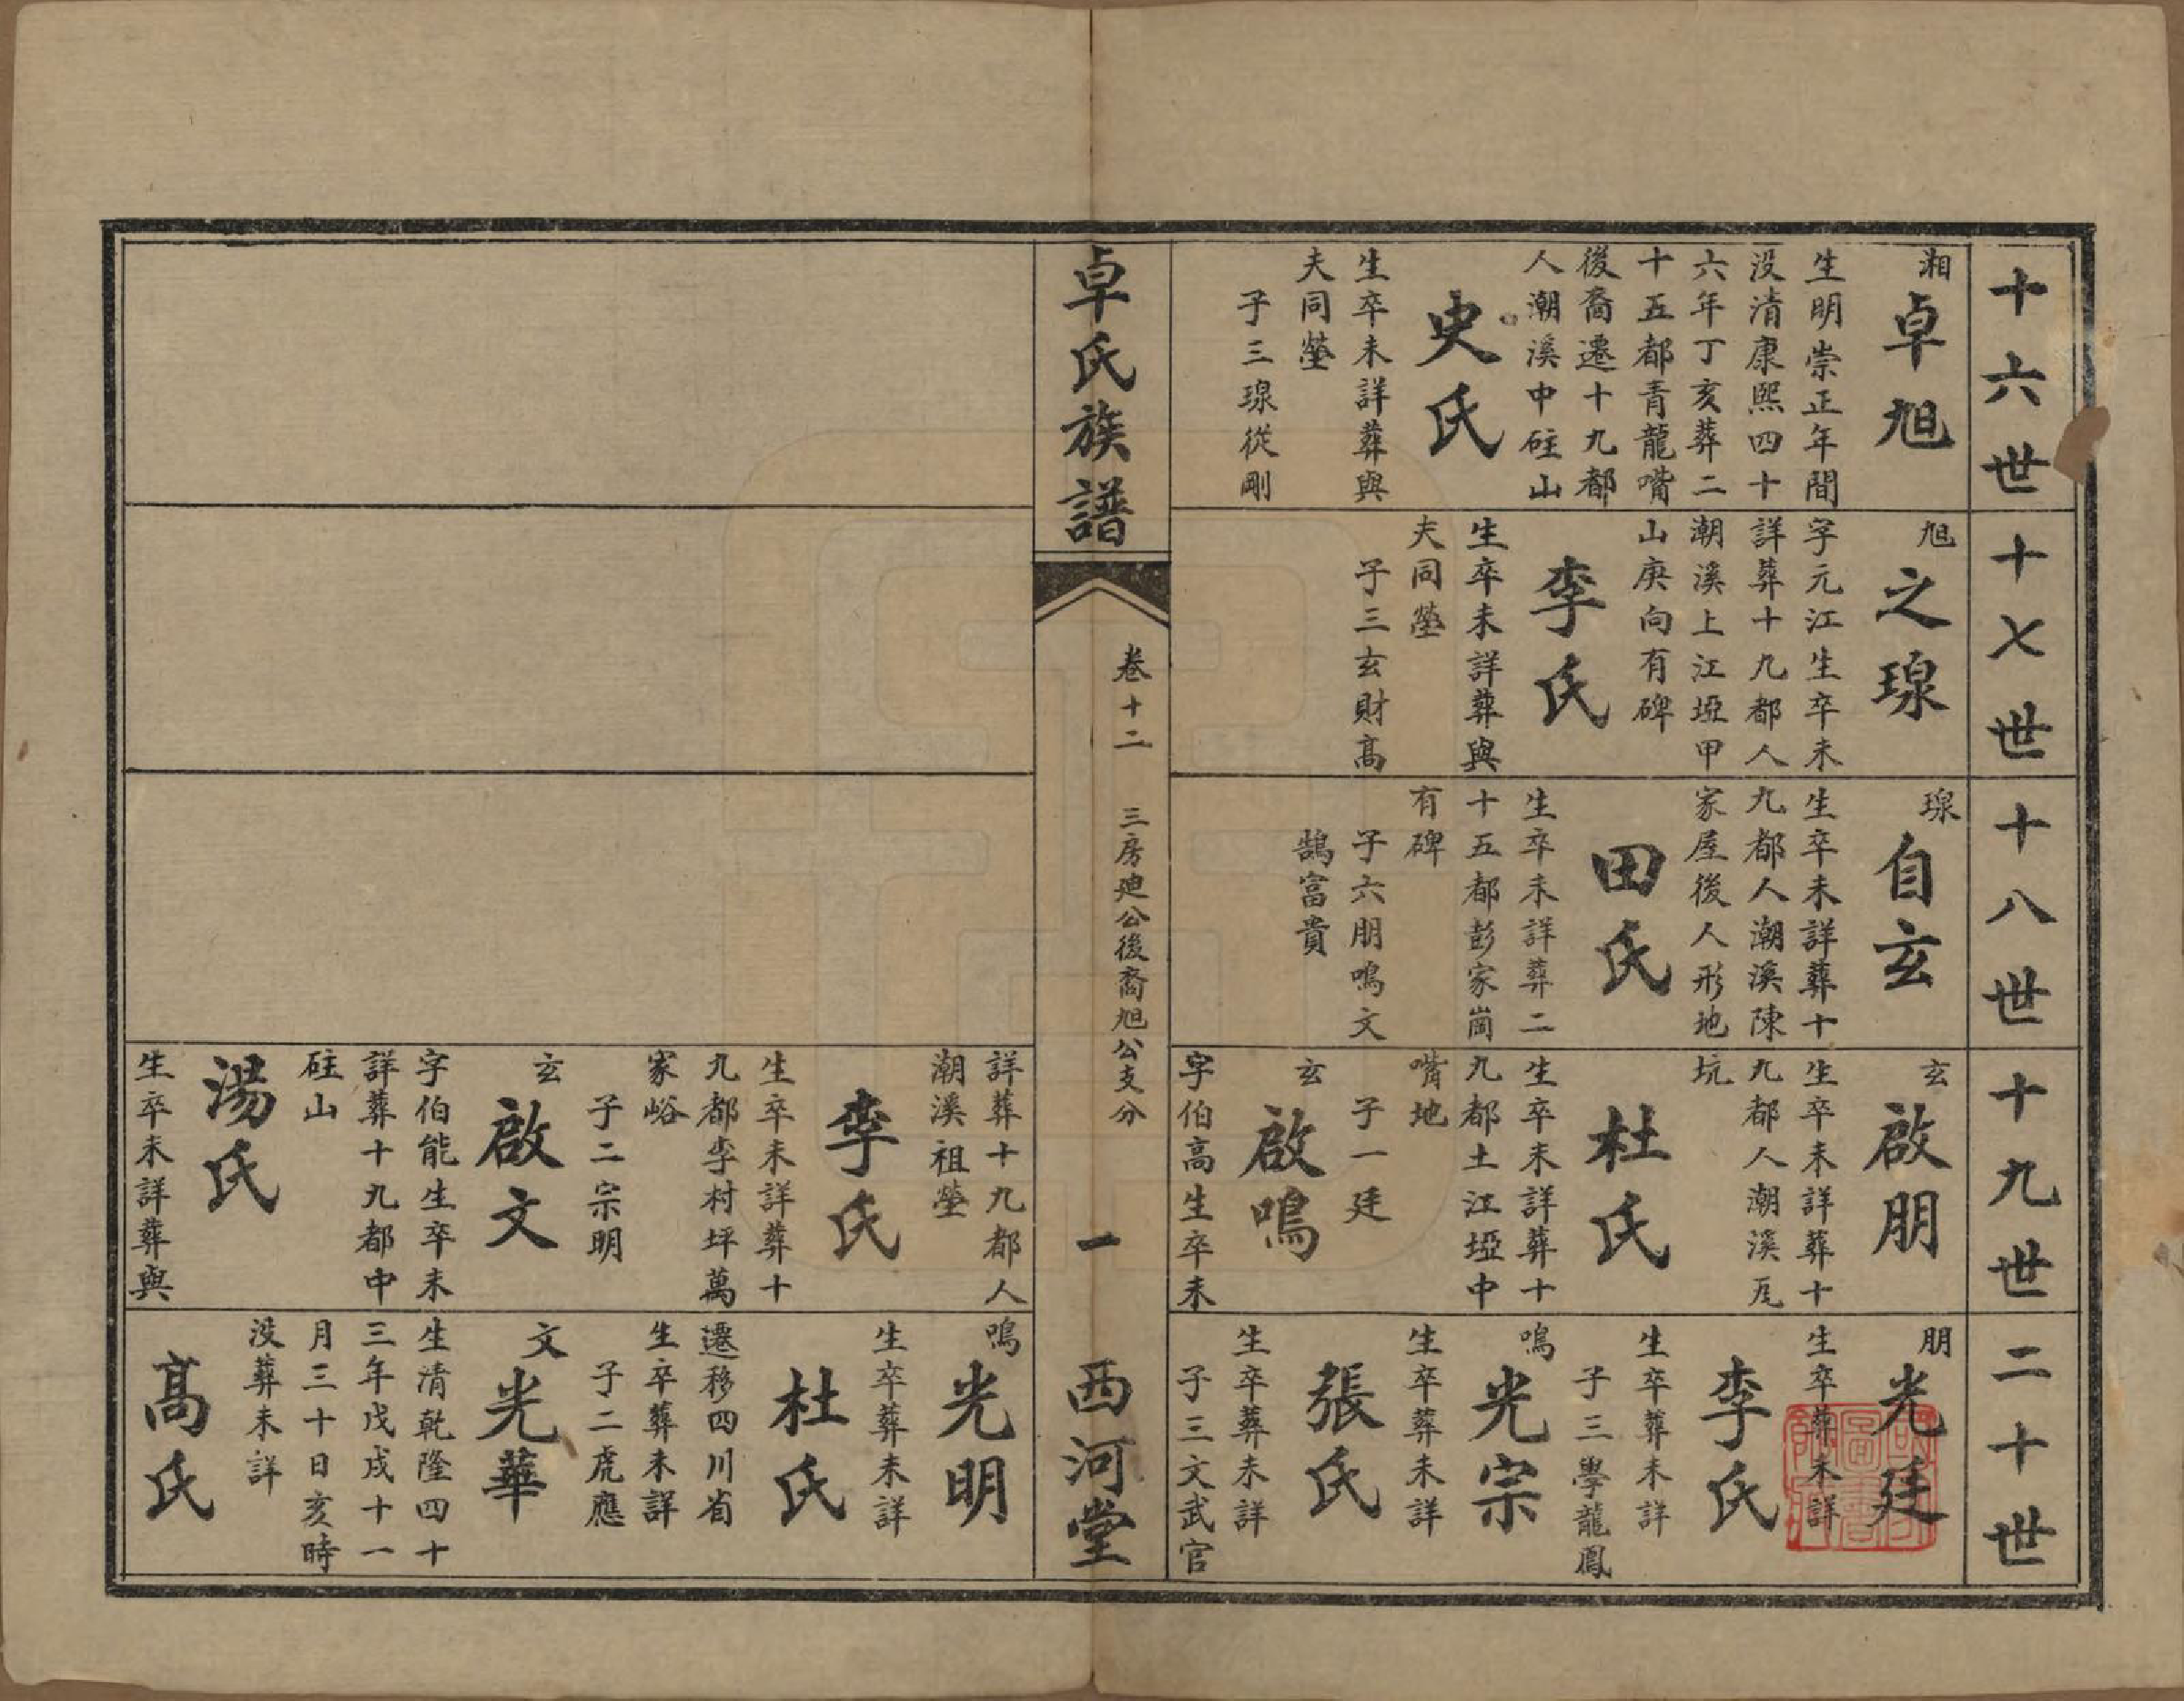 十六世
湘
卓旭
生明崇正年間
没清康熙四十
六年丁亥葬二
十五都青龍嘴
後裔遷十九都
人潮溪中砫山
史氏
生卒未詳葬與
夫同塋
子三璟從剛
十七世
旭
之璟
字元江生卒未
詳葬十九都人
潮溪上江埡甲
山庚向有碑
李氏
生卒未詳葬與
夫同塋
子三玄財高
十八世
璟
自玄
生卒未詳葬十
九都人潮溪陳
家屋後人形地
田氏
生卒未詳葬二
十五都彭家崗
有碑
子六朋鳴文
鵠富貴
十九世
玄
啟朋
生卒未詳葬十
九都人潮溪瓦
坑
杜氏
生卒未詳葬十
九都土江埡中
嘴地
子一廷
玄
啟鳴
字伯高生卒未
二十世
朋
光廷
生卒葬未詳
李氏
生卒葬未詳
子三學龍鳳
鳴
光宗
生卒葬未詳
張氏
生卒葬未詳
子三文武官
卓氏族譜
卷十二
三房廸公後裔旭公支分
一
西河堂
詳葬十九都人
潮溪祖塋
李氏
生卒未詳葬十
九都李村坪萬
家峪
子二宗明
玄
啟文
字伯能生卒未
詳葬十九都中
砫山
湯氏
生卒未詳葬與
鳴
光明
生卒葬未詳
杜氏
遷移四川省
生卒葬未詳
子二虎應
文
光華
生清乾隆四十
三年戊戌十一
月三十日亥時
没葬未詳
高氏